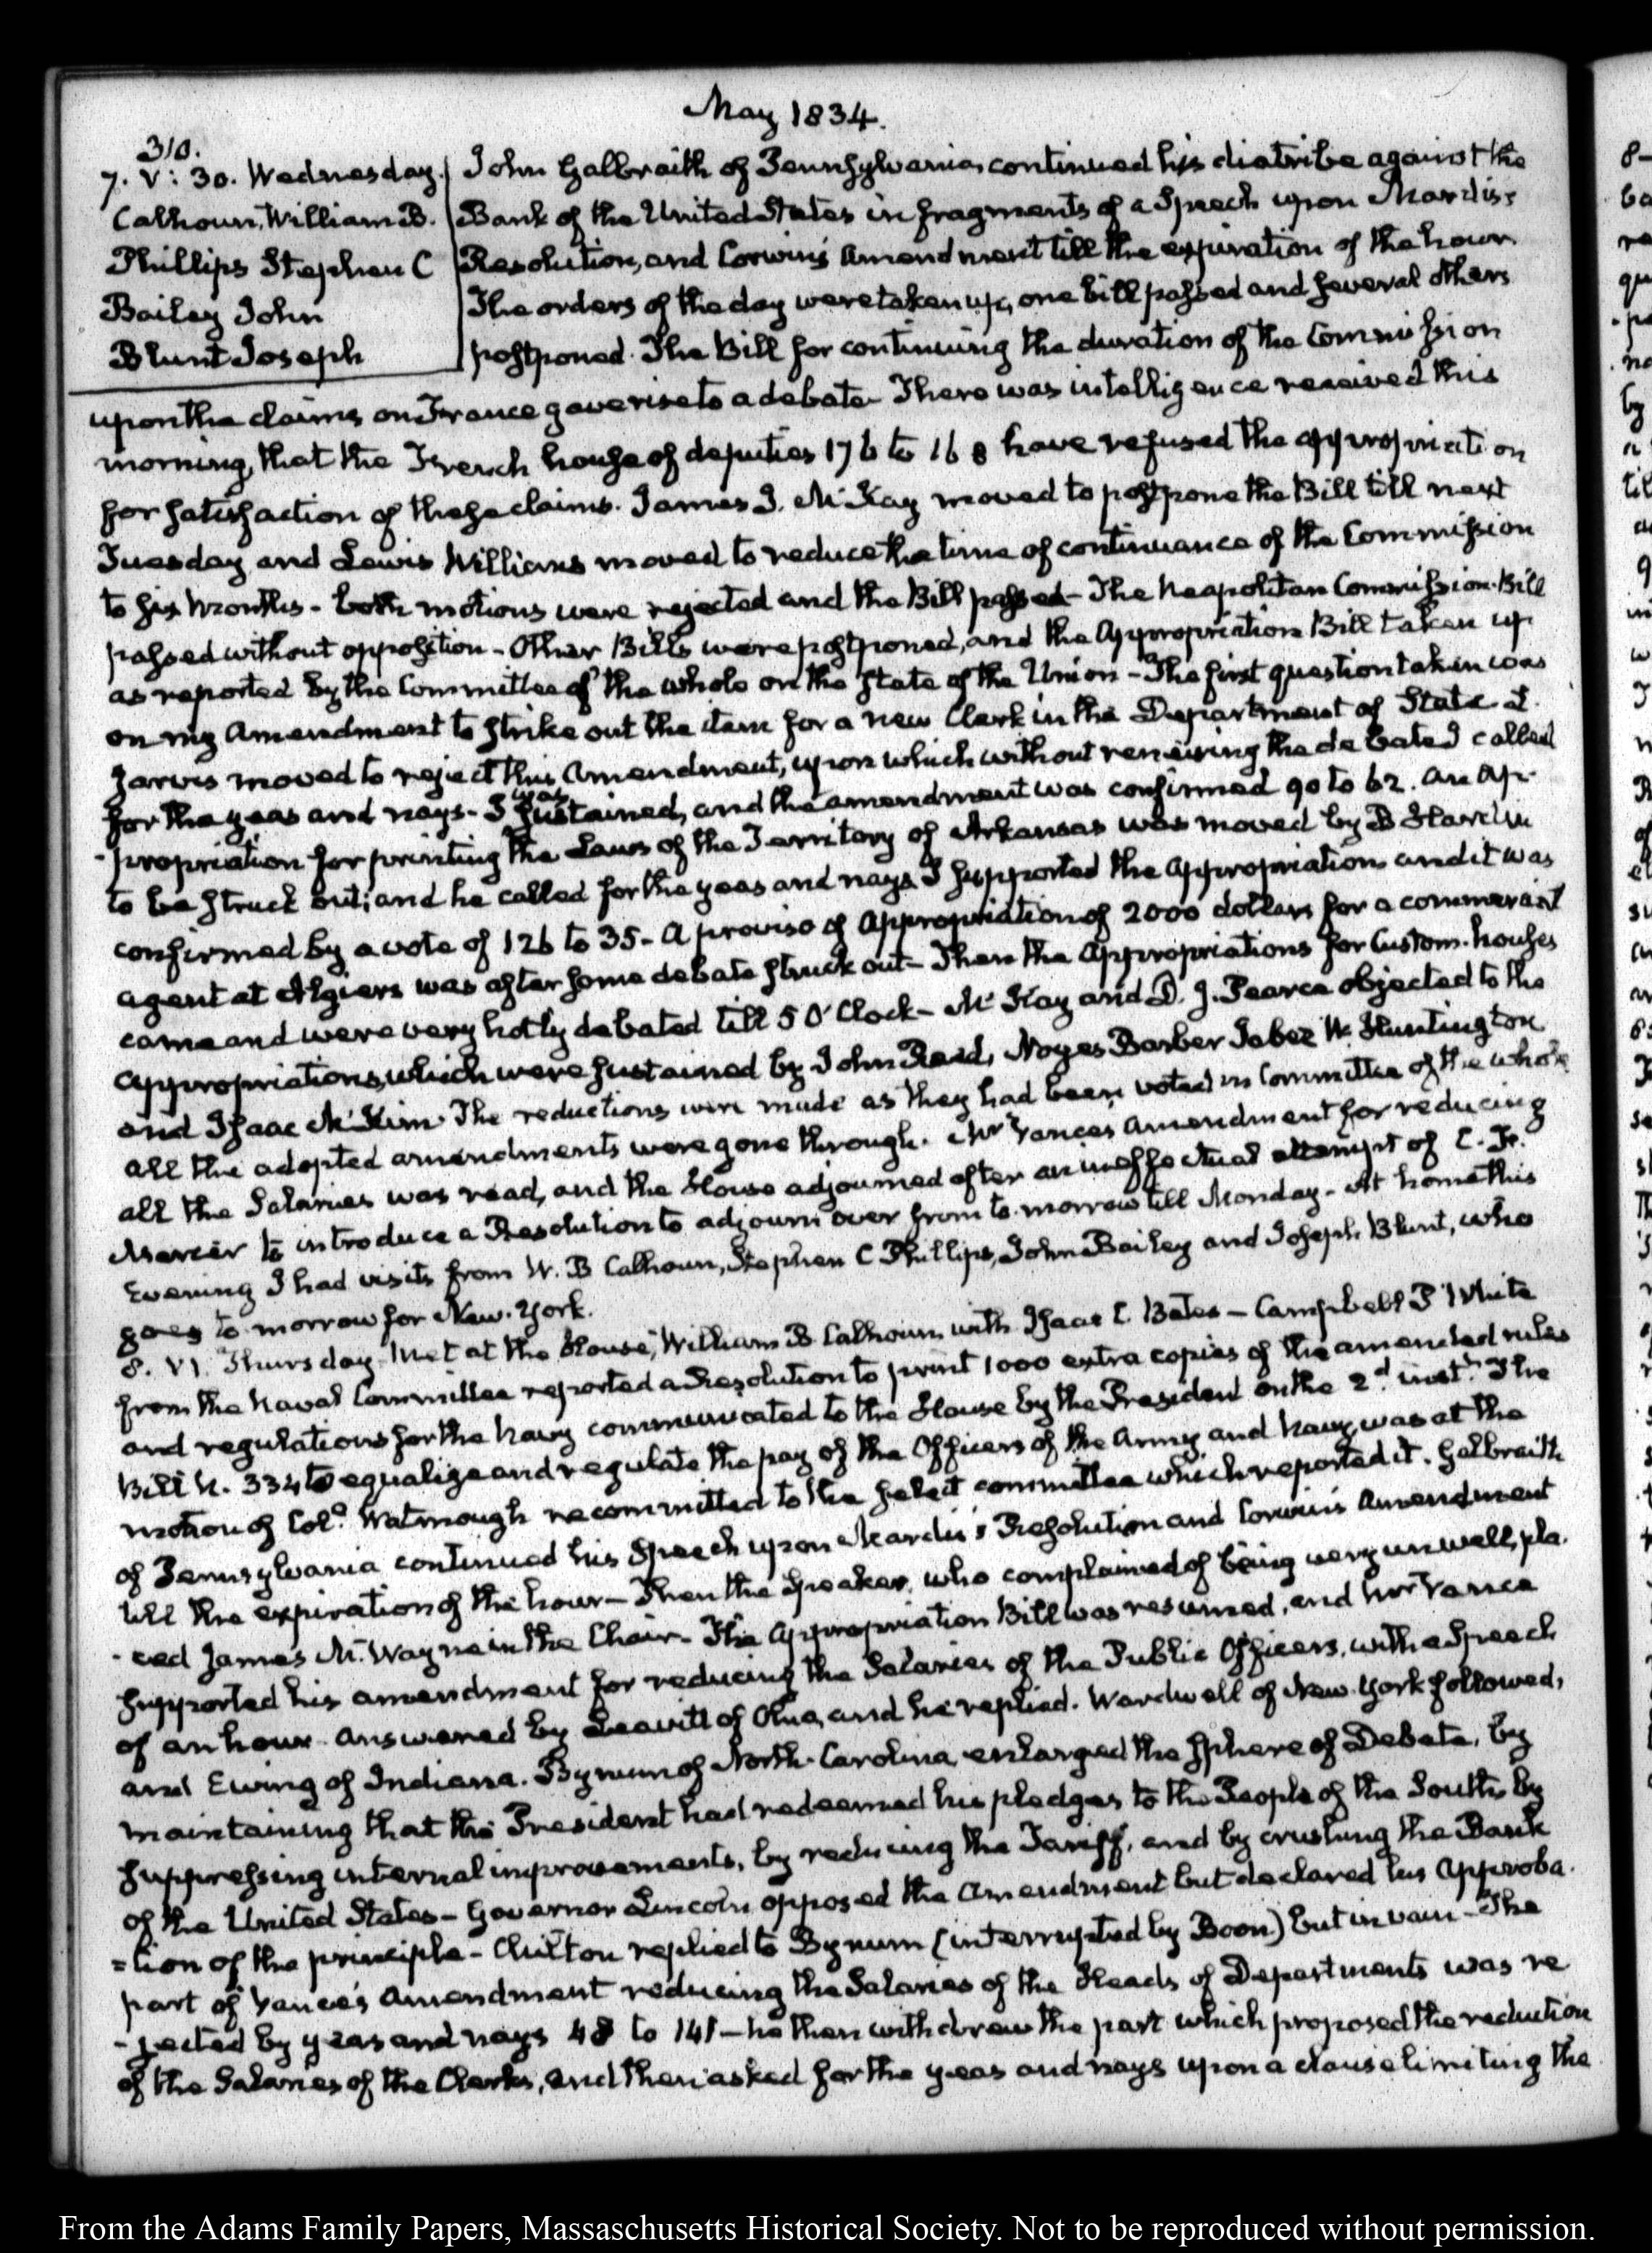 May 1834.
310.
7. V: 30. Wednesday. John Galbraith of Pennsylvania, continued his diatribe against the
Calhoun, William B. Bank of the United States in fragments of a Speech upon Mardis's
Phillips Stephen C Resolution, and Corwin's Amendment till the expiration of the hour
Bailey John The orders of the day were taken up, one bill passed and several others
Blunt Joseph postponed. The Bill for continuing the duration of the Commission
upon the claims on France gave rise to a debate. There was intelligence received this
morning, that the French house of deputies 176 to 168 have refused the appropriation
for satisfaction of these claims. James I. McKay moved to postpone the Bill till next
Tuesday and Lewis Williams moved to reduce the time of continuance of the Commission
to six months - both motions were rejected and the Bill passed - The Neapolitan Commission-Bill
passed without opposition - Other Bills were postponed, and the Appropriation Bill taken up
as reported by the Committee of the whole on the State of the Union - The first question taken was
on my Amendment to strike out the item for a new Clerk in the Department of State. L.
Jarvis moved to reject this Amendment, upon which without renewing the debate I called
for the yeas and nays - I was sustained, and the amendment was confirmed 90 to 62. An ap-
-propriation for printing the Laws of the Territory of Arkansas was moved by B Hardin
to be struck out; and he called for the yeas and nays. I supported the appropriation and it was
confirmed by a vote of 126 to 35 - A proviso of Appropriation of 2000 dollars for a commercial
agent at Algiers was after some debate struck out - Then the Appropriations for Custom-houses
came and were very hotly debated till 5 O'Clock - McKay and D. J. Pearce objected to the
appropriations, which were sustained by John Reed, Noyes Barber Jabez W. Huntington
and Isaac McKim. The reductions were made as they had been voted in Committee of the whole
all the adopted amendments were gone through. Mr Vance's Amendment for reducing
all the Salaries was read, and the House adjourned after an ineffectual attempt of C. F.
Mercer to introduce a Resolution to adjourn over from to-morrow till Monday - At home this
Evening I had visits from W. B Calhoun, Stephen C Phillips, John Bailey and Joseph Blunt, who
goes to morrow for New-York.
8. VI. Thursday. Met at the House, William B Calhoun, with Isaac C. Bates - Campbell P White
from the Naval Committee reported a Resolution to print 1000 extra copies of the amended rules
and regulations for the Navy communicated to the House by the President on the 2d. inst. The
Bill N. 334 to equalize and regulate the pay of the Officers of the Army and Navy, was at the
motion of Col. Watmough recommitted to the select committee which reported it. Galbraith
of Pennsylvania continued his Speech upon Mardis's Resolution and Corwin's Amendment
till the expiration of the hour - Then the Speaker, who complained of being very unwell, pla-
-ced James M. Wayne in the Chair - The Appropriation Bill was resumed, and Mr Vance
supported his amendment for reducing the Salaries of the Public Officers, with a Speech
of an hour - Answered by Leavitt of Ohio, and he replied. Wardwell of New-York followed,
and Ewing of Indiana. Bynum of North-Carolina enlarged the sphere of Debate, by
maintaining that the President had redeemed his pledges to the People of the South, by
suppressing internal improvements, by reducing the Tariff, and by crushing the Bank
of the United States - Governor Lincoln opposed the Amendment but declared his Approba-
=tion of the principle - Chilton replied to Bynum (interrupted by Boon) but in vain - The
part of Vance's Amendment reducing the Salaries of the Heads of Departments was re
-jected by yeas and nays 48 to 141 - he then withdrew the part which proposed the reduction
of the Salaries of the Clerks, and then asked for the yeas and nays upon a clause limiting the
From the Adams Family Papers, Massachusetts Historical Society. Not to be reproduced without permission.